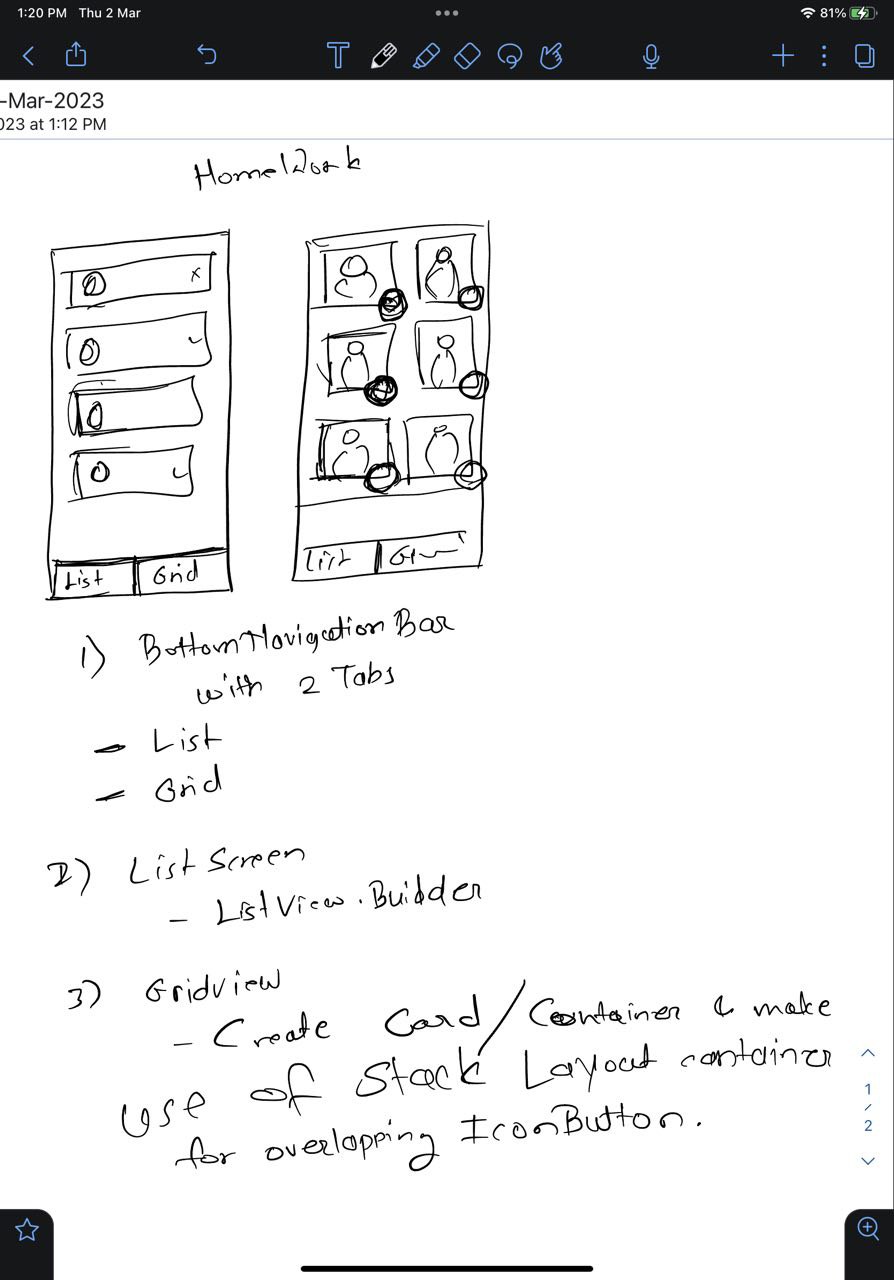 1:20 PM Thu 2 Mar
81%
-Mar-2023
023 at 1:12 PM
HomeWork
x
List Grid
List
1) BottomNavigation Bar
with 2 Tabs
- List
- Grid
2) List Screen
- ListView.Builder
3) Gridview
- Create Card/Container & make
use of Stack Layout container
for overlapping IconButton.
1
/
2